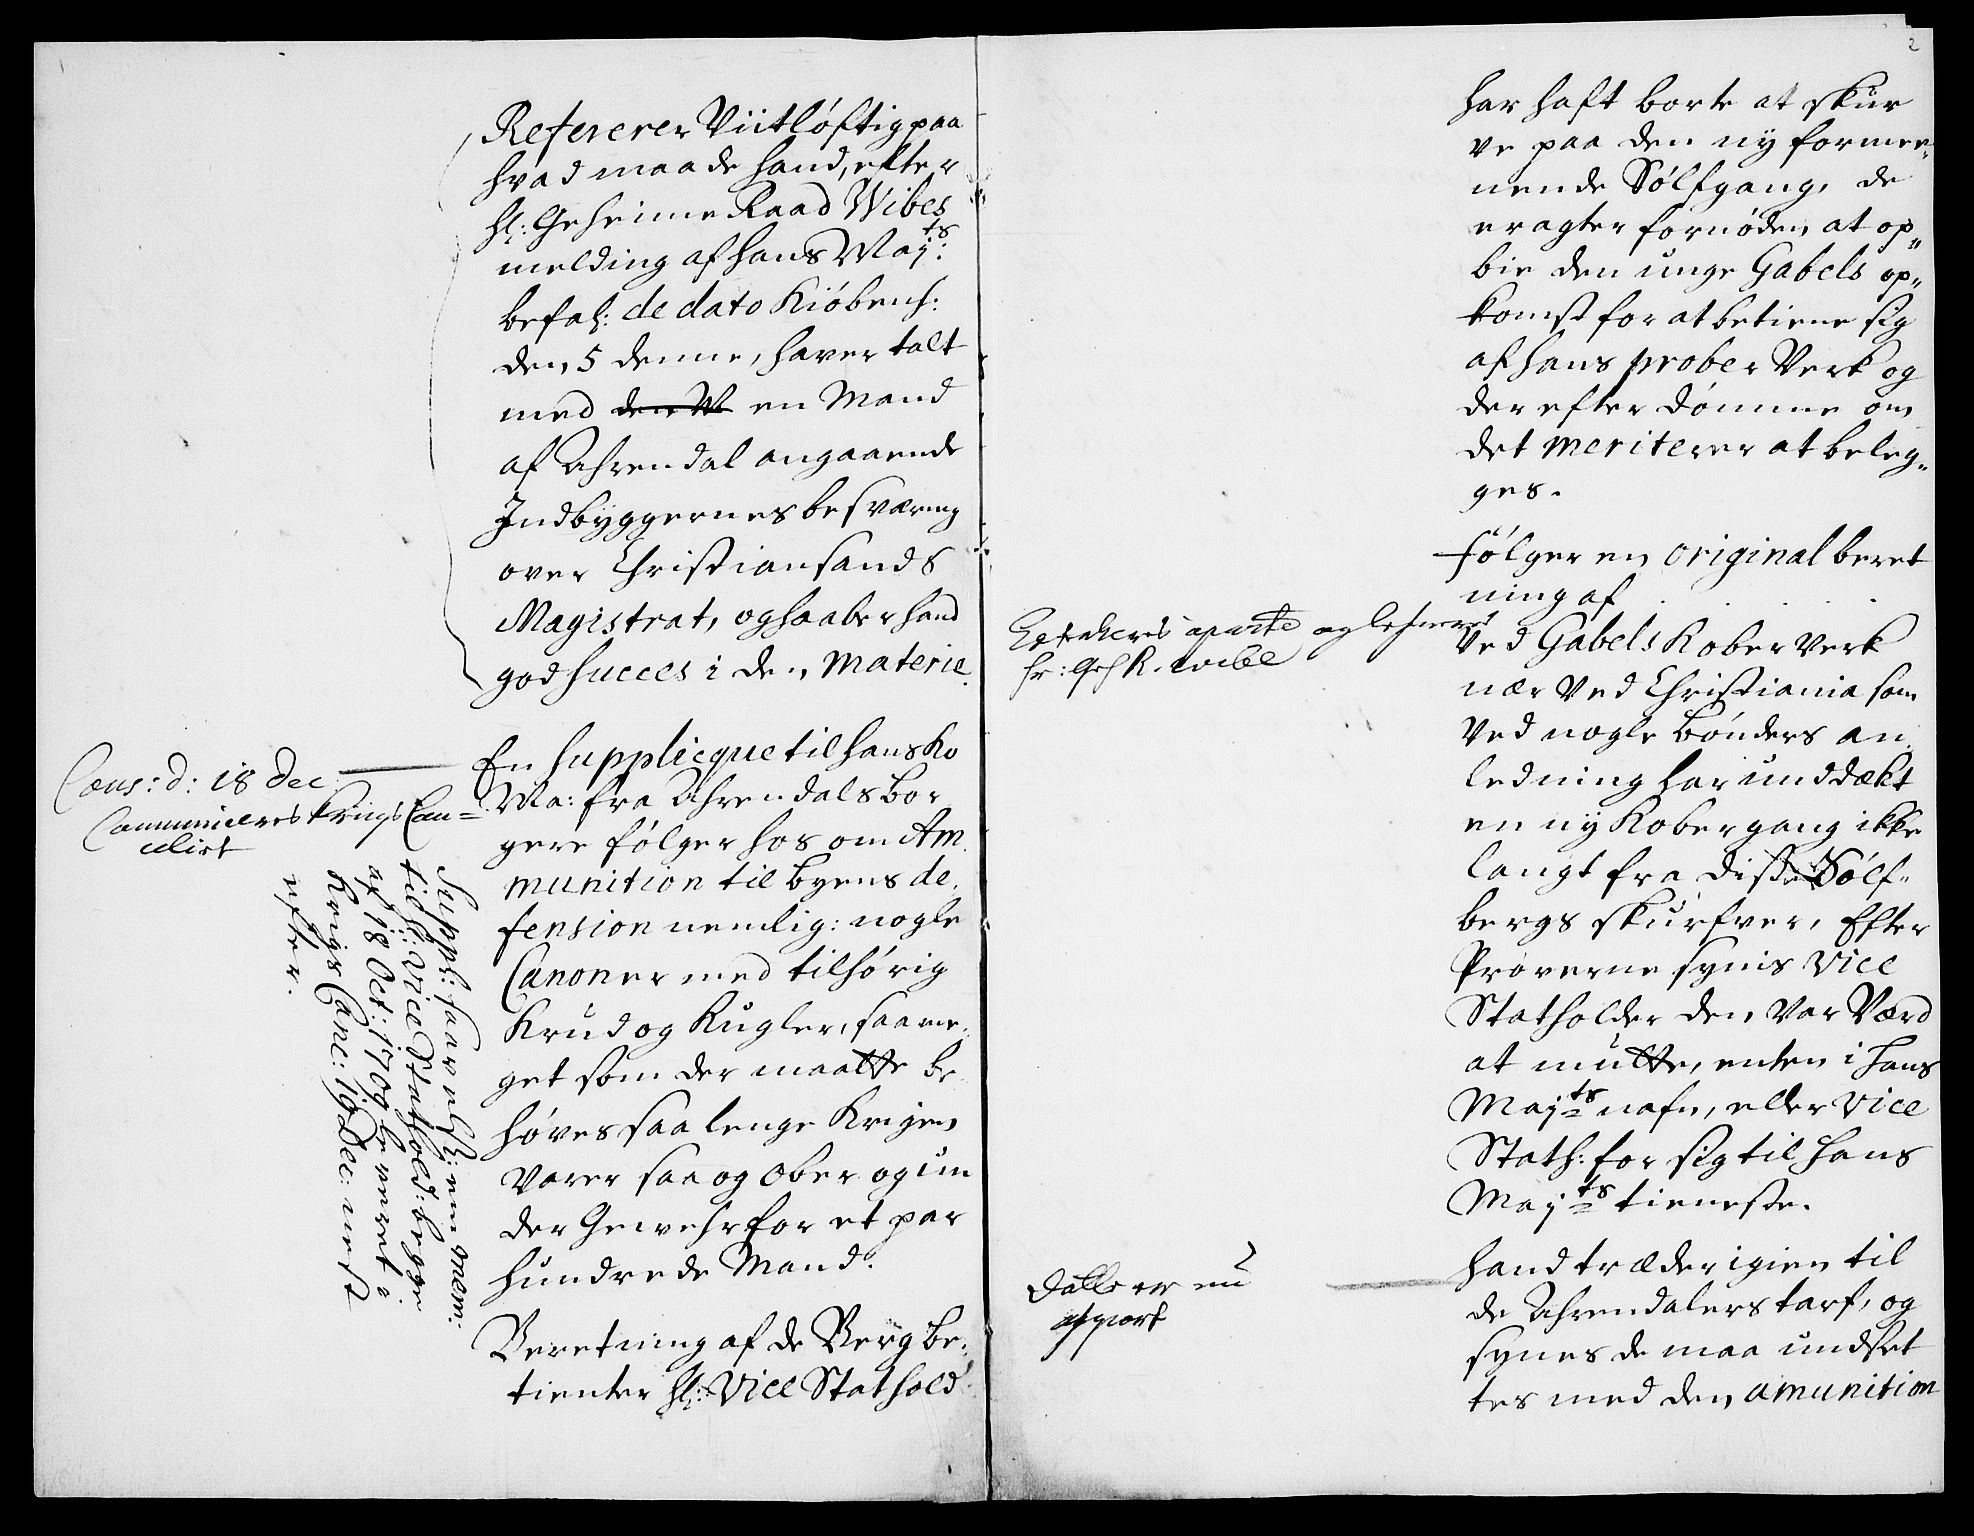 Refererer Viitløftig paa
hvad maade hand, efter
hl: Geheime Raad Wibes
melding af hans Majts:
befal: de dato Kiøbenh:
den 5 denne, haver talt
med den M en Mand
af Ahrendal angaaende
Indbyggernes besværing
over Christiansands
Magistrat, og haaber hand
god succes i den materie.
Cons: d: 18 Dec
Communiceres Krigs Can=
cilist
En supplicque til hans Ko
Ma: fra Ahrendals bor
gere følger hos om Am
munition til byens de
fension nemlig: nogle
Canoner med tilhørig
Krud og Kugler, saa me
get som der maatte be
høves saa lenge Krigen
varer saa og ober og un
der Gewehr for et par
hundrede Mand.
Suppl: saavelsk: em mem:
til h: Vice Statholds: begge
af 18 Oct: 1709 leveret i
Krigs Canc: 19 Dec: nest
efter.
Beretning af de Berg be
tienter hl: Vice Stathold
2
har haft borte at skur
ve paa den ny formee,
nende Sølfgang, de
eragter fornøden at op„
bie den unge Gabels op„
komst for at betiene sig
af hans prober Verk og
der efter dømme om
det meriterer at beleg„
ges.
Følger en original beret
ning af
aparte og leveret
hr: Geh R. wibe
Ved Gabels Kober Verk
nær Ved Christiania som
Ved nogle bønders an
ledning har unddækt
en ny Kober gang ikke
langt fra disse Sølf„
bergs skurfver, Efter
Prøverne synis Vice
Statholder den var Værd
at mutte, enten i hans
Majts nafn, eller Vice
Stath: for sig til hans
Majts tieneste.
Dette er nu
apart
Hand træder igien til
de Ahrendalers tarf, og
synes de maa undset
tes med den amunition